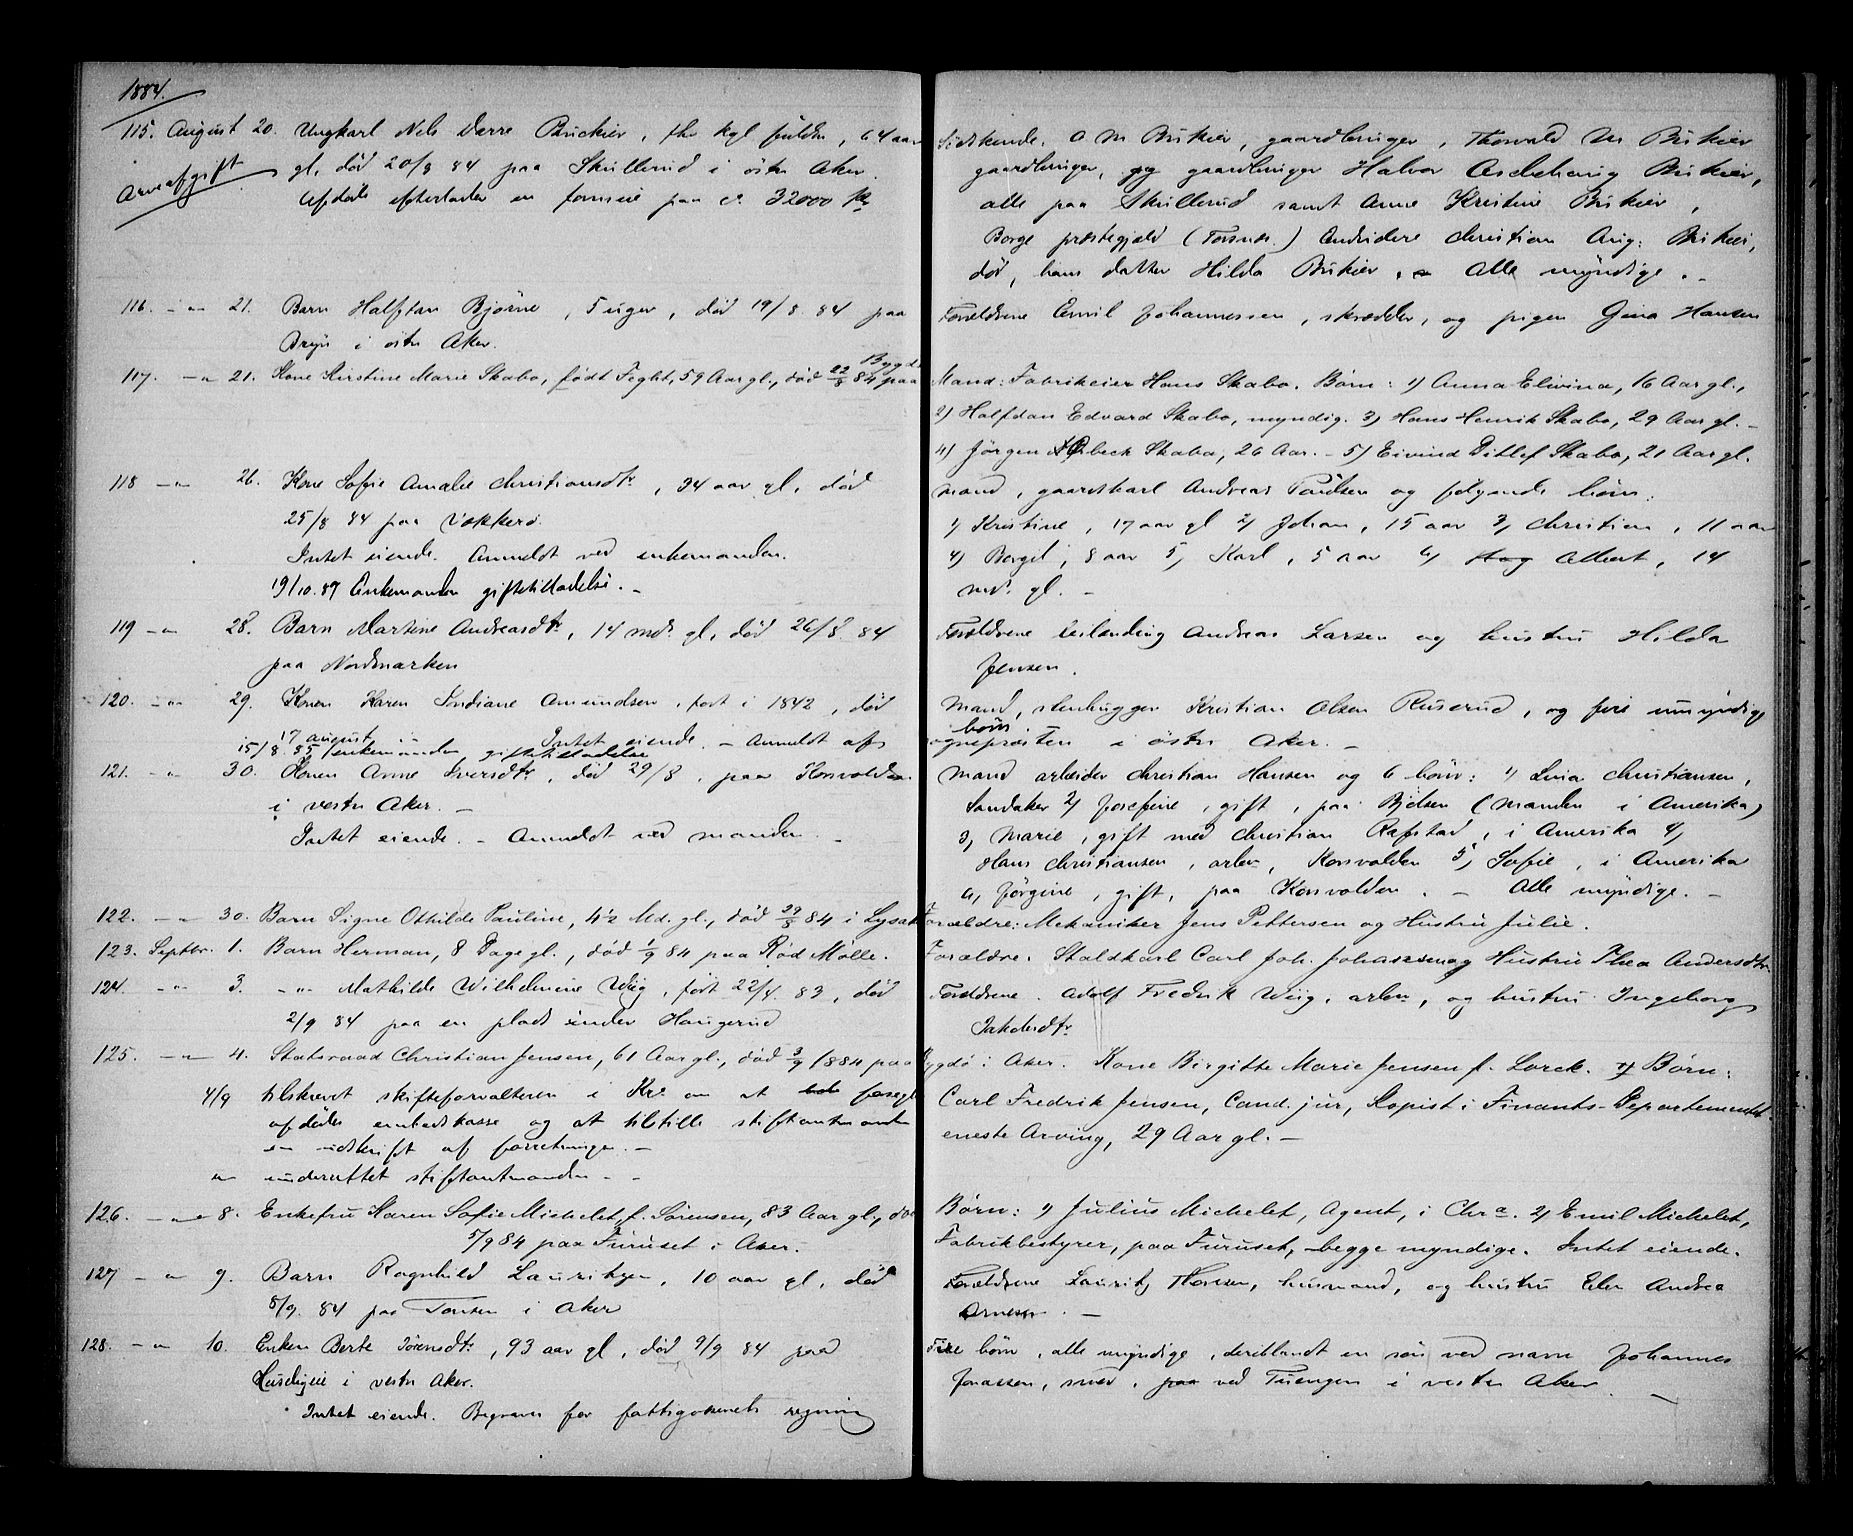 1884.
115. August 20. Ungkarl Nels Darre Buckier, kgl fuldm, 64 aar
Arveafgift
gl, død 20/8 84 paa Skullerud i østre Aker.
Afdøde efterlader en formue paa ca 32000 Kr
Sødskende. O M Bukier, gaardbruger, Thorvald M Bukier
gaardbruger, gaardbruger Halvor Aschehaug Bukier,
alle paa Skullerud samt Anne Kristine Bukier,
Borge præstegjæld (Torsnes.) Endvidere Christian Aug: Bukier,
død, hans datter Hilda Bukier. Alle myndige. –
116. – „ – 21. Barn Halftan Bjørne, 5 uger, død 19/8 84 paa
Bryn i østre Aker.
Forældrene Emil Johannessen, skrædder, og pigen Gina Hansen
117. – „ 21. Kone Kirstine Marie Skabo, født Feght, 59 Aar gl., død 22/8 84 paa Bygdø
Mand: Fabrikeier Hans Skabo. Børn: 1) Anna Elivina, 16 Aar gl.,
2) Halfdan Edvard Skabo, myndig. 3) Hans Henrik Skabo, 29 Aar gl. –
4) Jørgen Skabo, 26 Aar. – 5) Eivind Ditlef Skabo, 21 Aar gl.
118 – „ – 26. Kone Sofie Amalie Christiansdtr, 34 aar gl, død
25/8 84 paa Vækkerø.
Intet eiende. Anmeldt ved enkemanden.
19/10.87 Enkemanden giftetilladelse. –
Mand, gaardskarl Andreas Paulsen og følgende børn:
1) Kristine, 17 aar gl 2) Johan, 15 aar 3) Christian, 11 aar
4) Borgil, 8 aar 5) Karl, 5 aar 6) Albert, 14
md. gl. –
119 – „ 28. Barn Martine Andreasdtr, 14 mdr gl, død 26/8 84
paa Nordmarken
Forældrene Andreas Larsen og hustru Hilda
Jensen.
120. – „ 29. Konen Karen Indiane Amundsen, født i 1842, død
17 august. Intet eiende. – Anmeldt af
15/8. 85 enkemanden giftetilladelse
Mand, stenhugger Kristian Olsen Ruserud, og fire umyndige
børn
sognepresten i østre Aker. –
121. – „ 30. Konen Anne Iversdtr, død 29/8, paa Korsvolden
i vestre Aker. –
Intet eiende. – Anmeldt ved manden. –
Mand arbeider Christian Hansen og 6 børn: 1) Lina Christiansen,
Sandaker 2) Josefine, gift, paa Bjølsen (manden i Amerika)
3, Marie, gift med Christian Rafstad, i Amerika 4,
Hans Christiansen, arbr, Korsvolden 5, Sofie, i Amerika
6, Jørgine, gift, paa Korsvolden. – Alle myndige. –
122. – „ 30. Barn Signe Othilde Pauline, 4½ Md. gl., død 29/8 84 i Lysak
Forældre: Mekaniker Jens Pettersen og Hustru Julie.
123. Septbr. 1. Barn Herman, 8 Dage gl., død 1/9 84 paa Rød Mølle.
Forældre. Staldkarl Carl Joh. Johansen og Hustru Thea Andersdtr
124. – „ 3. – „ – Mathilde Wilhelmine Wiig, født 22/4. 83, død
2/9 84 paa en plads under Haugerud
Forældrene. Adolf Fredrik Wiig, arbr, og hustru Ingeborg
Jakobsdtr
125. – „ – 4. Statsraad Christian Jensen, 61 Aar gl., død 3/9 1884 paa
Bygdø i Aker. Kone Birgitte Marie Jensen f. Lorck. Børn:
4/9 tilskrevet skifteforvalteren i Kra om at forsegle
afdødes embedskasse og at tilstille stiftamtmanden
en udskrift af forretningen. –
„ underrettet stiftamtmanden – –
Carl Fredrik Jensen, Cand. jur, Kopist i Finants-Departementet
eneste Arving, 29 Aar gl. –
126. – „ 8. Enkefru Karen Sofie Michelet, f. Sørensen, 83 Aar gl., død
5/9 84 paa Furuset i Aker.
Børn: 1) Julius Michelet, Agent, i Chra. 2) Emil Michelet,
Fabrikbestyrer, paa Furuset, begge myndige. Intet eiende.
127 – „ 9. Barn Ragnhild Lauritzen, 10 aar gl, død
8/9. 84 paa Tonsen i Aker
Forældrene Lauritz Hansen, husmand, og hustru Elen Andrea
Arnesen. –
128. – „ 10. Enken Berte Sørensdtr, 93 aar gl, død 9/9 84 paa
i vestre Aker.
Intet eiende. Begraves for fattigvæsenets regning
Fire børn, alle myndige, deriblandt en søn ved navn Johannes
Jonassen, smed, paa ved Tuengen i vestre Aker. –